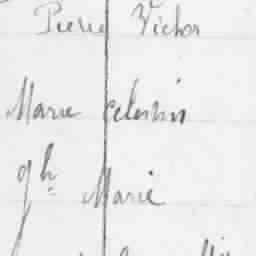 Pierre Victor
Marie Celestin
gh Marie